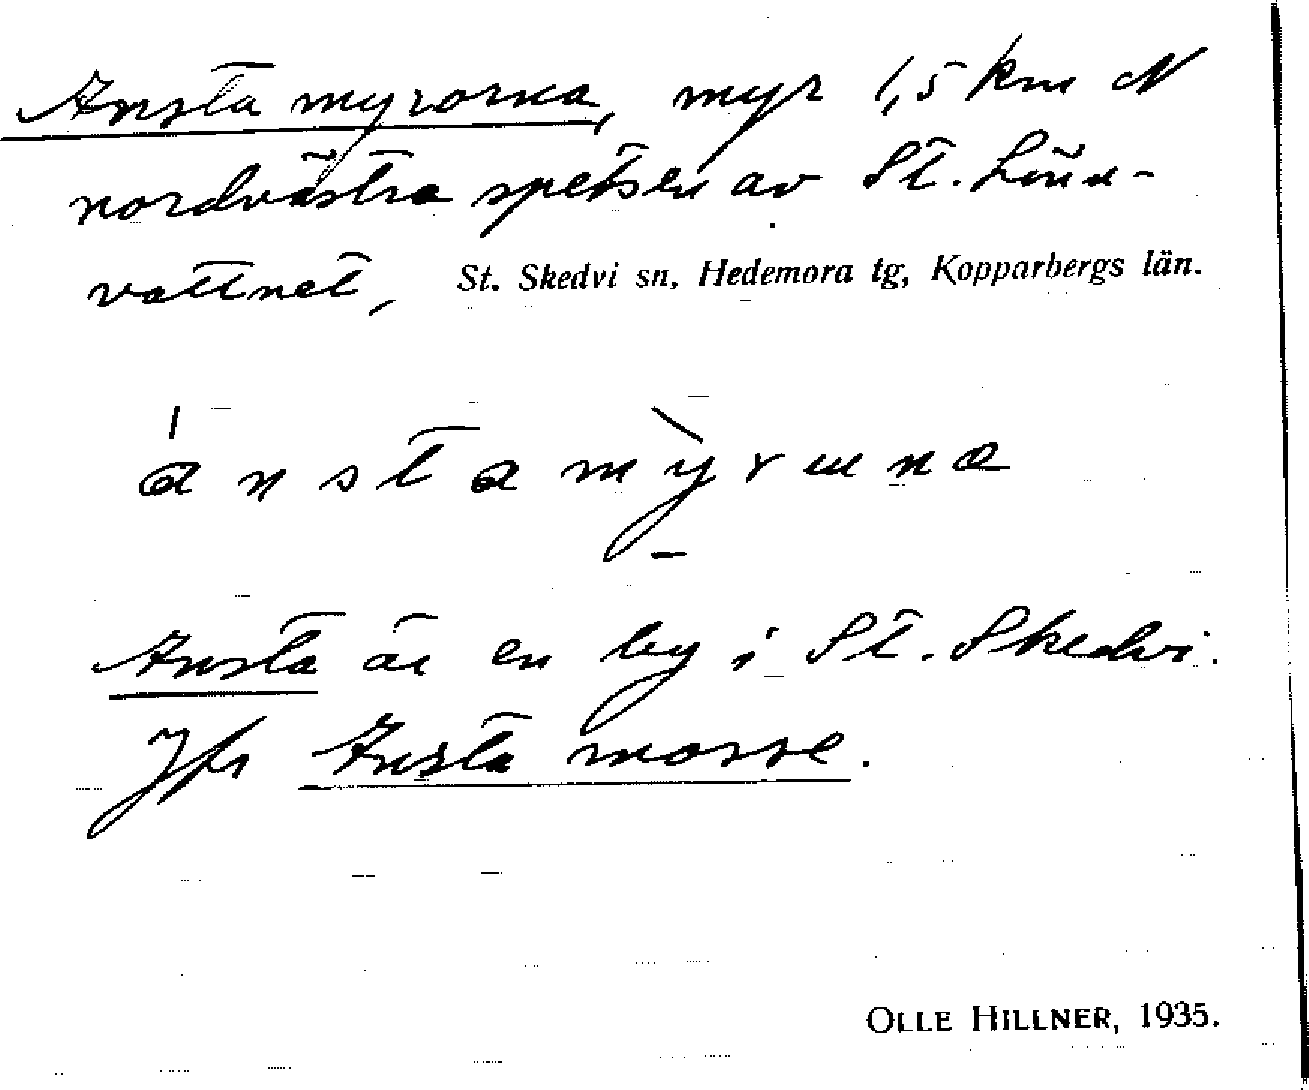 Ansta myrorna, myr 1,5 km N
nordvästra spetsen av St. Lön-
vattnet, St. Skedvi sn, Hedemora tg, Kopparbergs län.
ánstamỳrɯna
Ansta är en by i St. Skedvi.
Jfr Ansta mosse.
OLLE HILLNER, 1935.